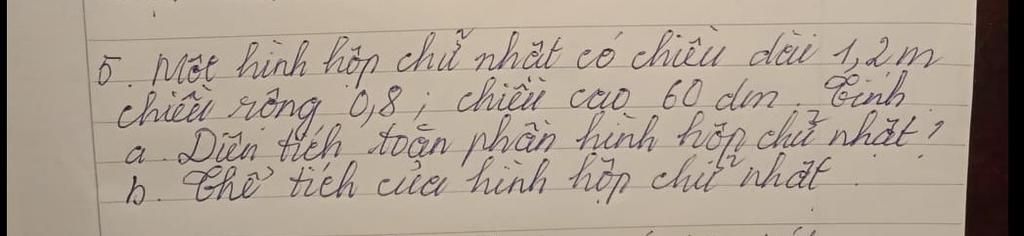 5. Một hình hộp chữ nhật có chiều dài 1,2 m
chiều rộng 0,8 ; chiều cao 60 dm. Tính
a. Diện tích toàn phần hình hộp chữ nhật ?
b. Thể tích của hình hộp chữ nhật.